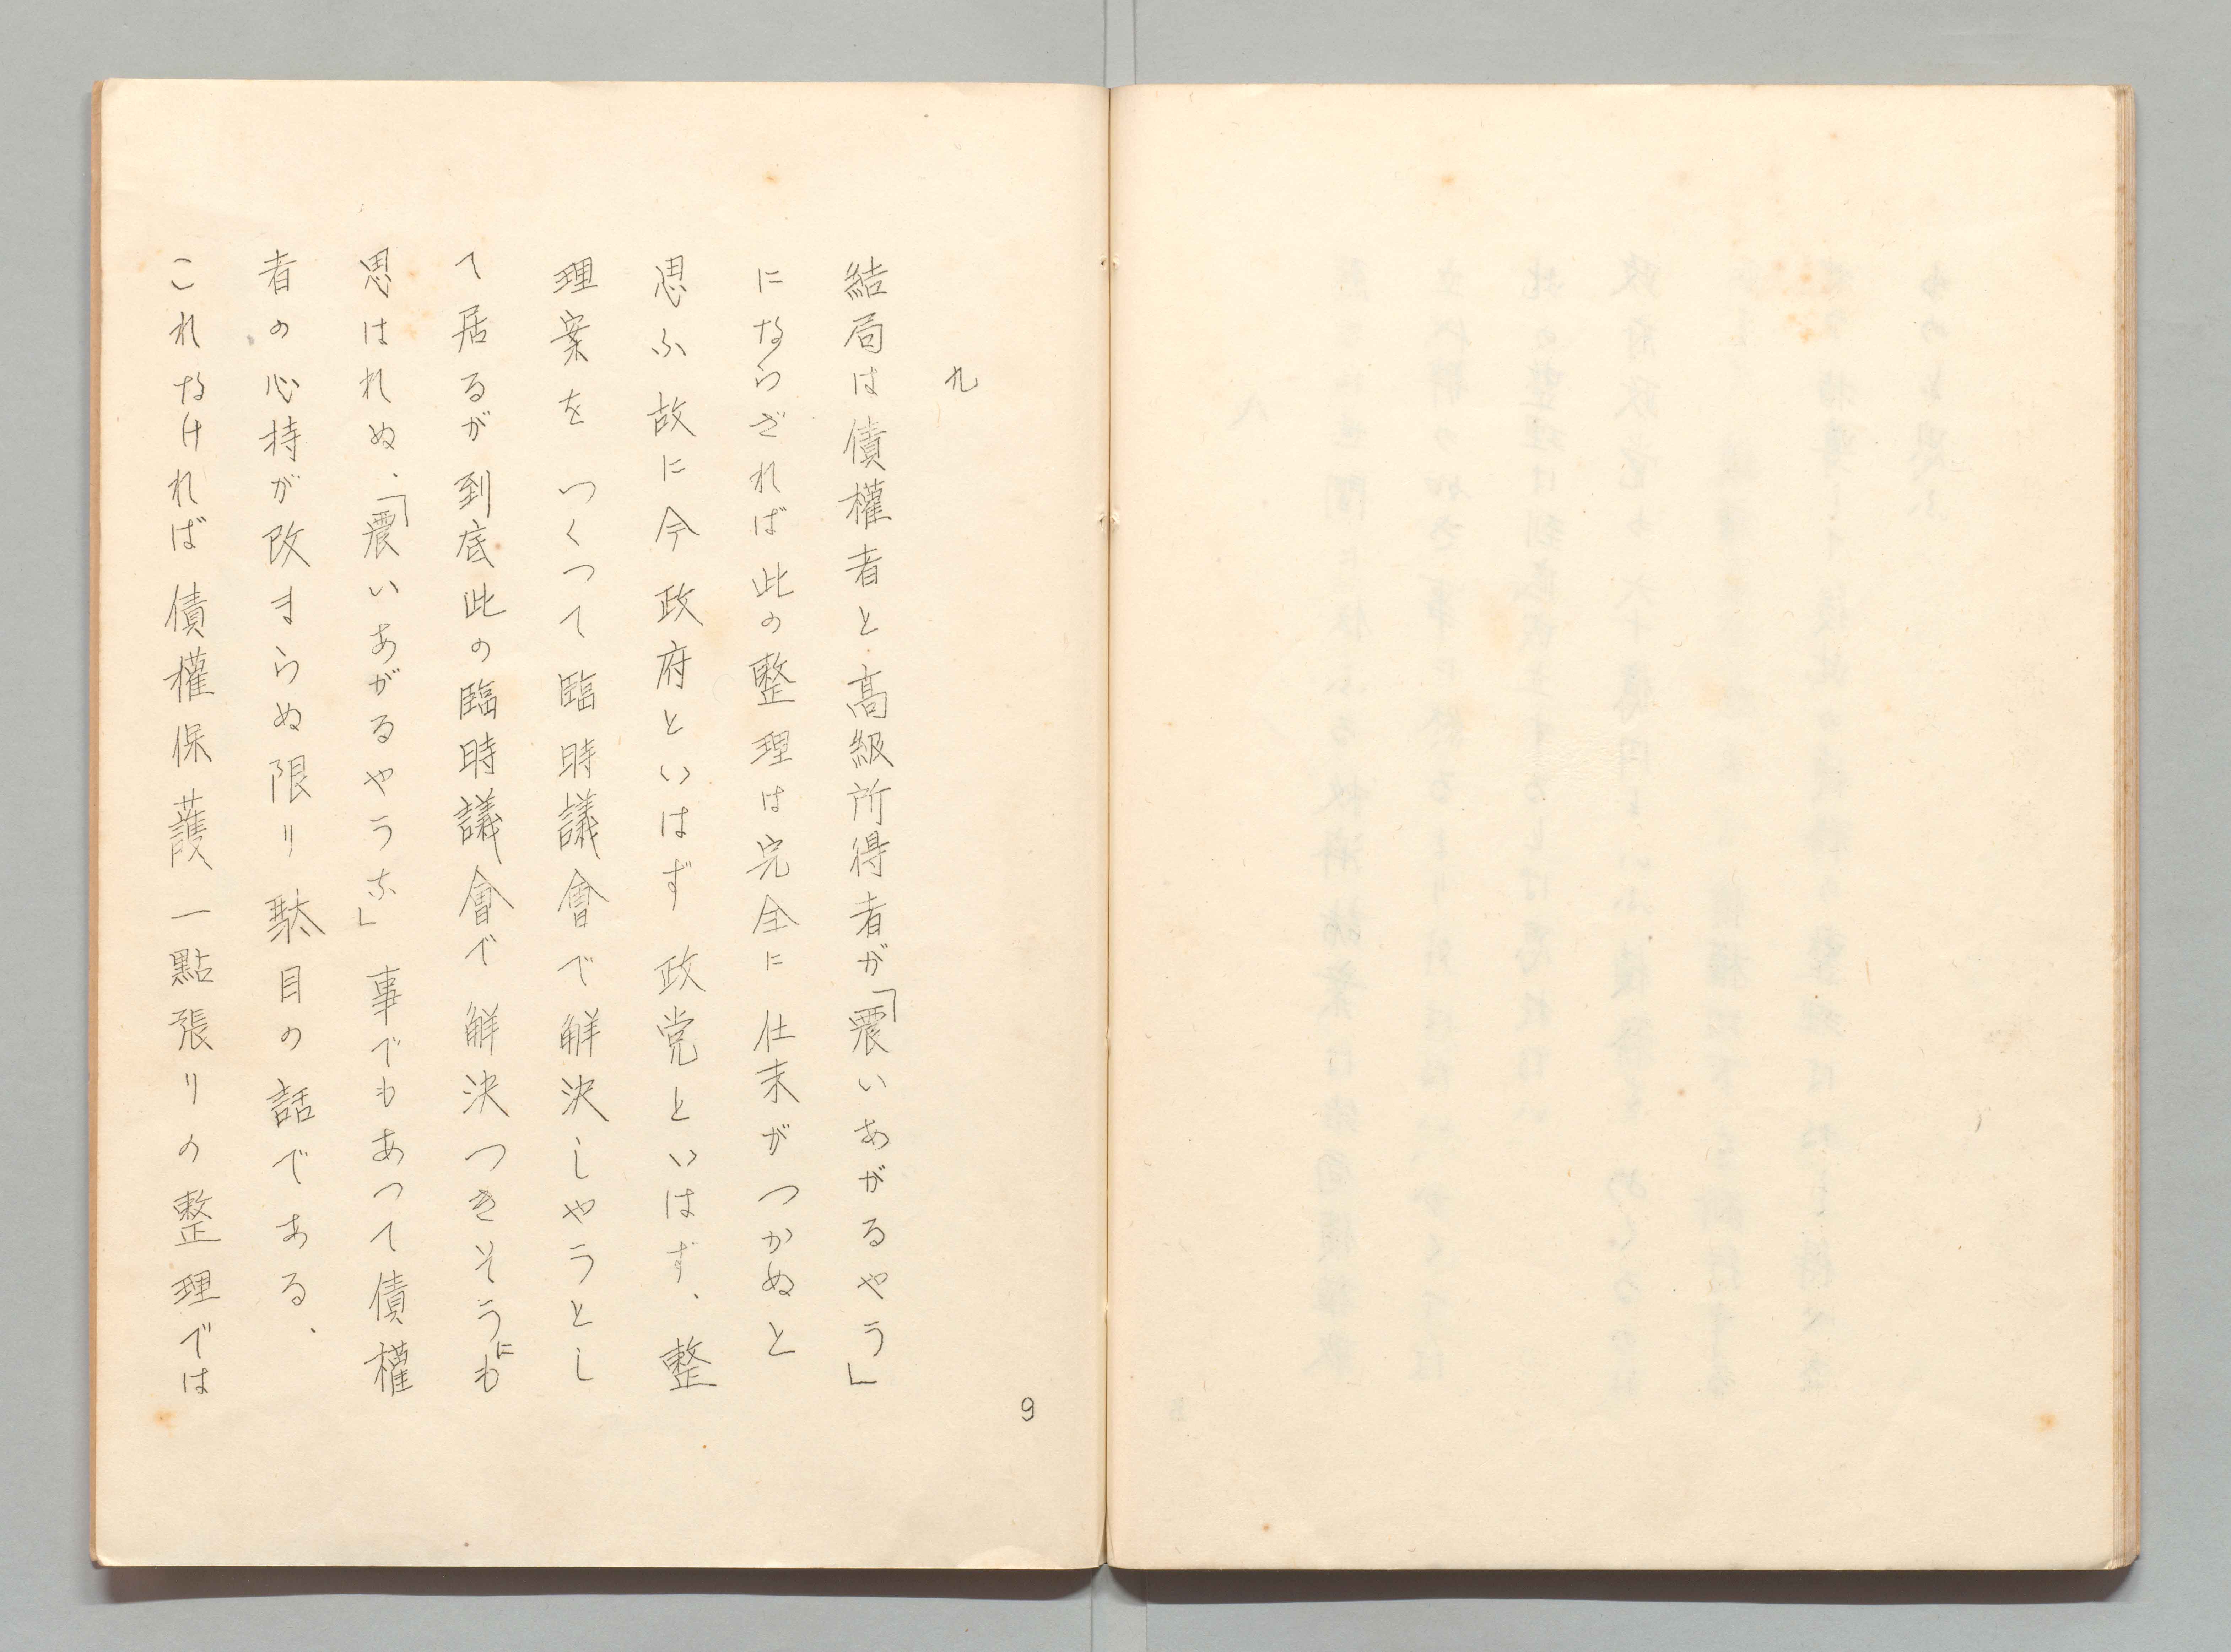 九
結局は債權者と高級所得者が「震いあがるやう」
にならざれば此の整理は完全に仕末がつかぬと
思ふ故に今政府といはず政党といはず、整
理案をつくつて臨時議會で解決しやうとし
て居るが到底此の臨時議會で解決つきそうにも
思はれぬ、「震いあがるやうな」事でもあつて債權
者の心持が改まらぬ限り駄目の話である、
これなければ債權保護一點張りの整理では
9